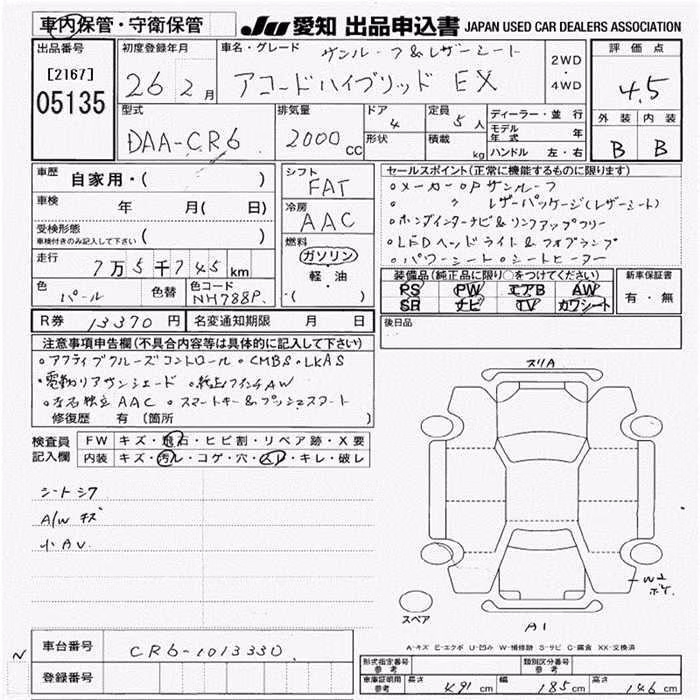 車内保管・守衛保管
JU 愛知 出品申込書 JAPAN USED CAR DEALERS ASSOCIATION
出品番号 初度登録年月 車名・グレード サンルーフ&レザーシート 2WD・4WD 評価点
[2167]
05135 26 2月 アコードハイブリッド EX 4.5
型式 排気量 ドア 定員 ディーラー・並行 外装 内装
DAA-CR6 2000cc 4 5人 モデル年式 年 B B
形状 積載 kg ハンドル 左・右
車歴 自家用・( ) シフト FAT セールスポイント(正常に機能するものに限ります)
車検 年 月( 日) 冷房 AAC
。メーカーOPサンルーフ
〃 レザーパッケージ(レザーシート)
受検形態 車検付きのみ記入して下さい ( )
。ホンダインターナビ&リンクアップフリー
走行 7万5千745km 燃料 ガソリン・軽・油・( )
。LEDヘッドライト&フォグランプ
。パワーシート。シートヒーター
色 パール 色替 色コード NH788P
装備品(純正品に限り○をつけてください) 新車保証書
PS PW エアB AW 有・無
SR ナビ TV カワシート
R券 13370円 名変通知期限 月 日 後日品
注意事項申告欄(不具合内容等は具体的に記入して下さい)
。アクティブクルーズコントロール。CMBS。LKAS
。電動リアサンシェード。純正17インチAW
。左右独立AAC。スマートキー&プッシュスタート
修復歴 有 (箇所 )
検査員記入欄 FW キズ・飛石・ヒビ割・リペア跡・X要
内装 キズ・汚レ・コゲ・穴・スレ・キレ・破レ
シートシワ
A/W キズ
小AU
スリA
W2
ボケ
スペア
A1
A-キズ E-エクボ U-凹み W-補修跡 S-サビ C-腐食 XX-交換済
N
車台番号 CR6-1013330
登録番号
形式指定番号 参考 類別区分番号 参考
車庫証明用 参考 長さ 491cm 幅 185cm 高さ 146cm